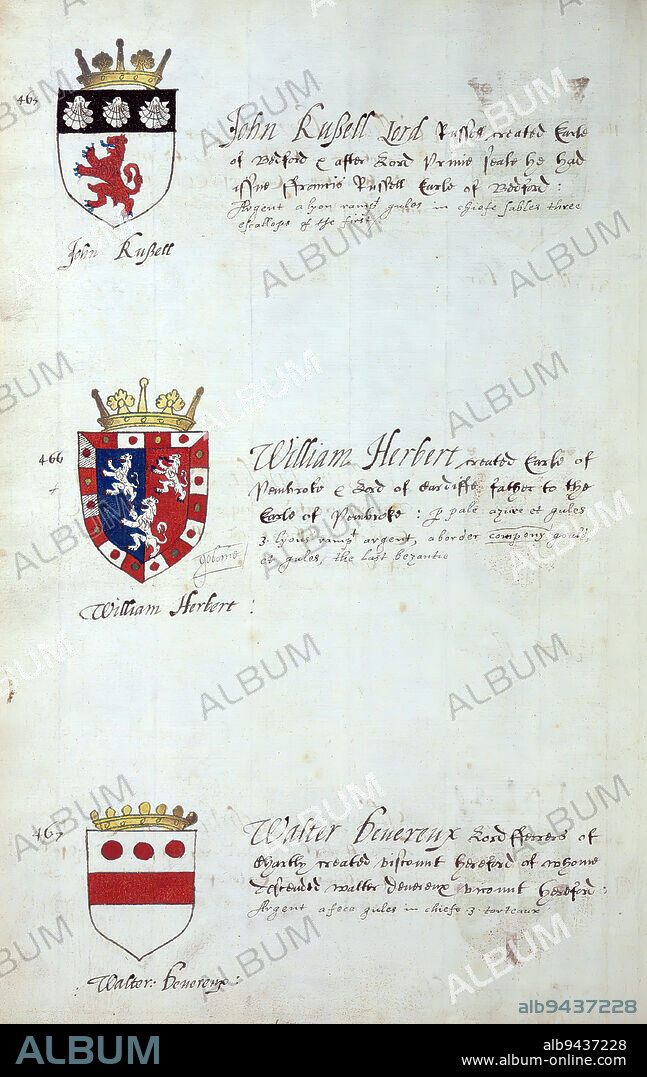 465
John Rußell Lord Russel created Earle
of Bedford & after Lord Privie seale he had
issue ffrancis Russell Earle of Bedford:
Argent a lyon ramp gules in chiefe sables three
escallops of the first
John Rußell
466
William Herbert created Earle of
Pembroke & Lord of Cardiffe father to the
Earle of Pembroke: p pale azure et gules
3 lyons ramp argent, a border compony
et gules, the last bezantie
William Herbert:
467
Walter Deveroux Lord fferrers of
Chartly created viscount Hereford of whome
descended Walter Devereux vicount Hereford:
Argent a feca gules in chiefe 3 torteaux
Walter: Deveroux:
ALBUM
alb9437228
ALBUM
alb9437228
www.album-online.com